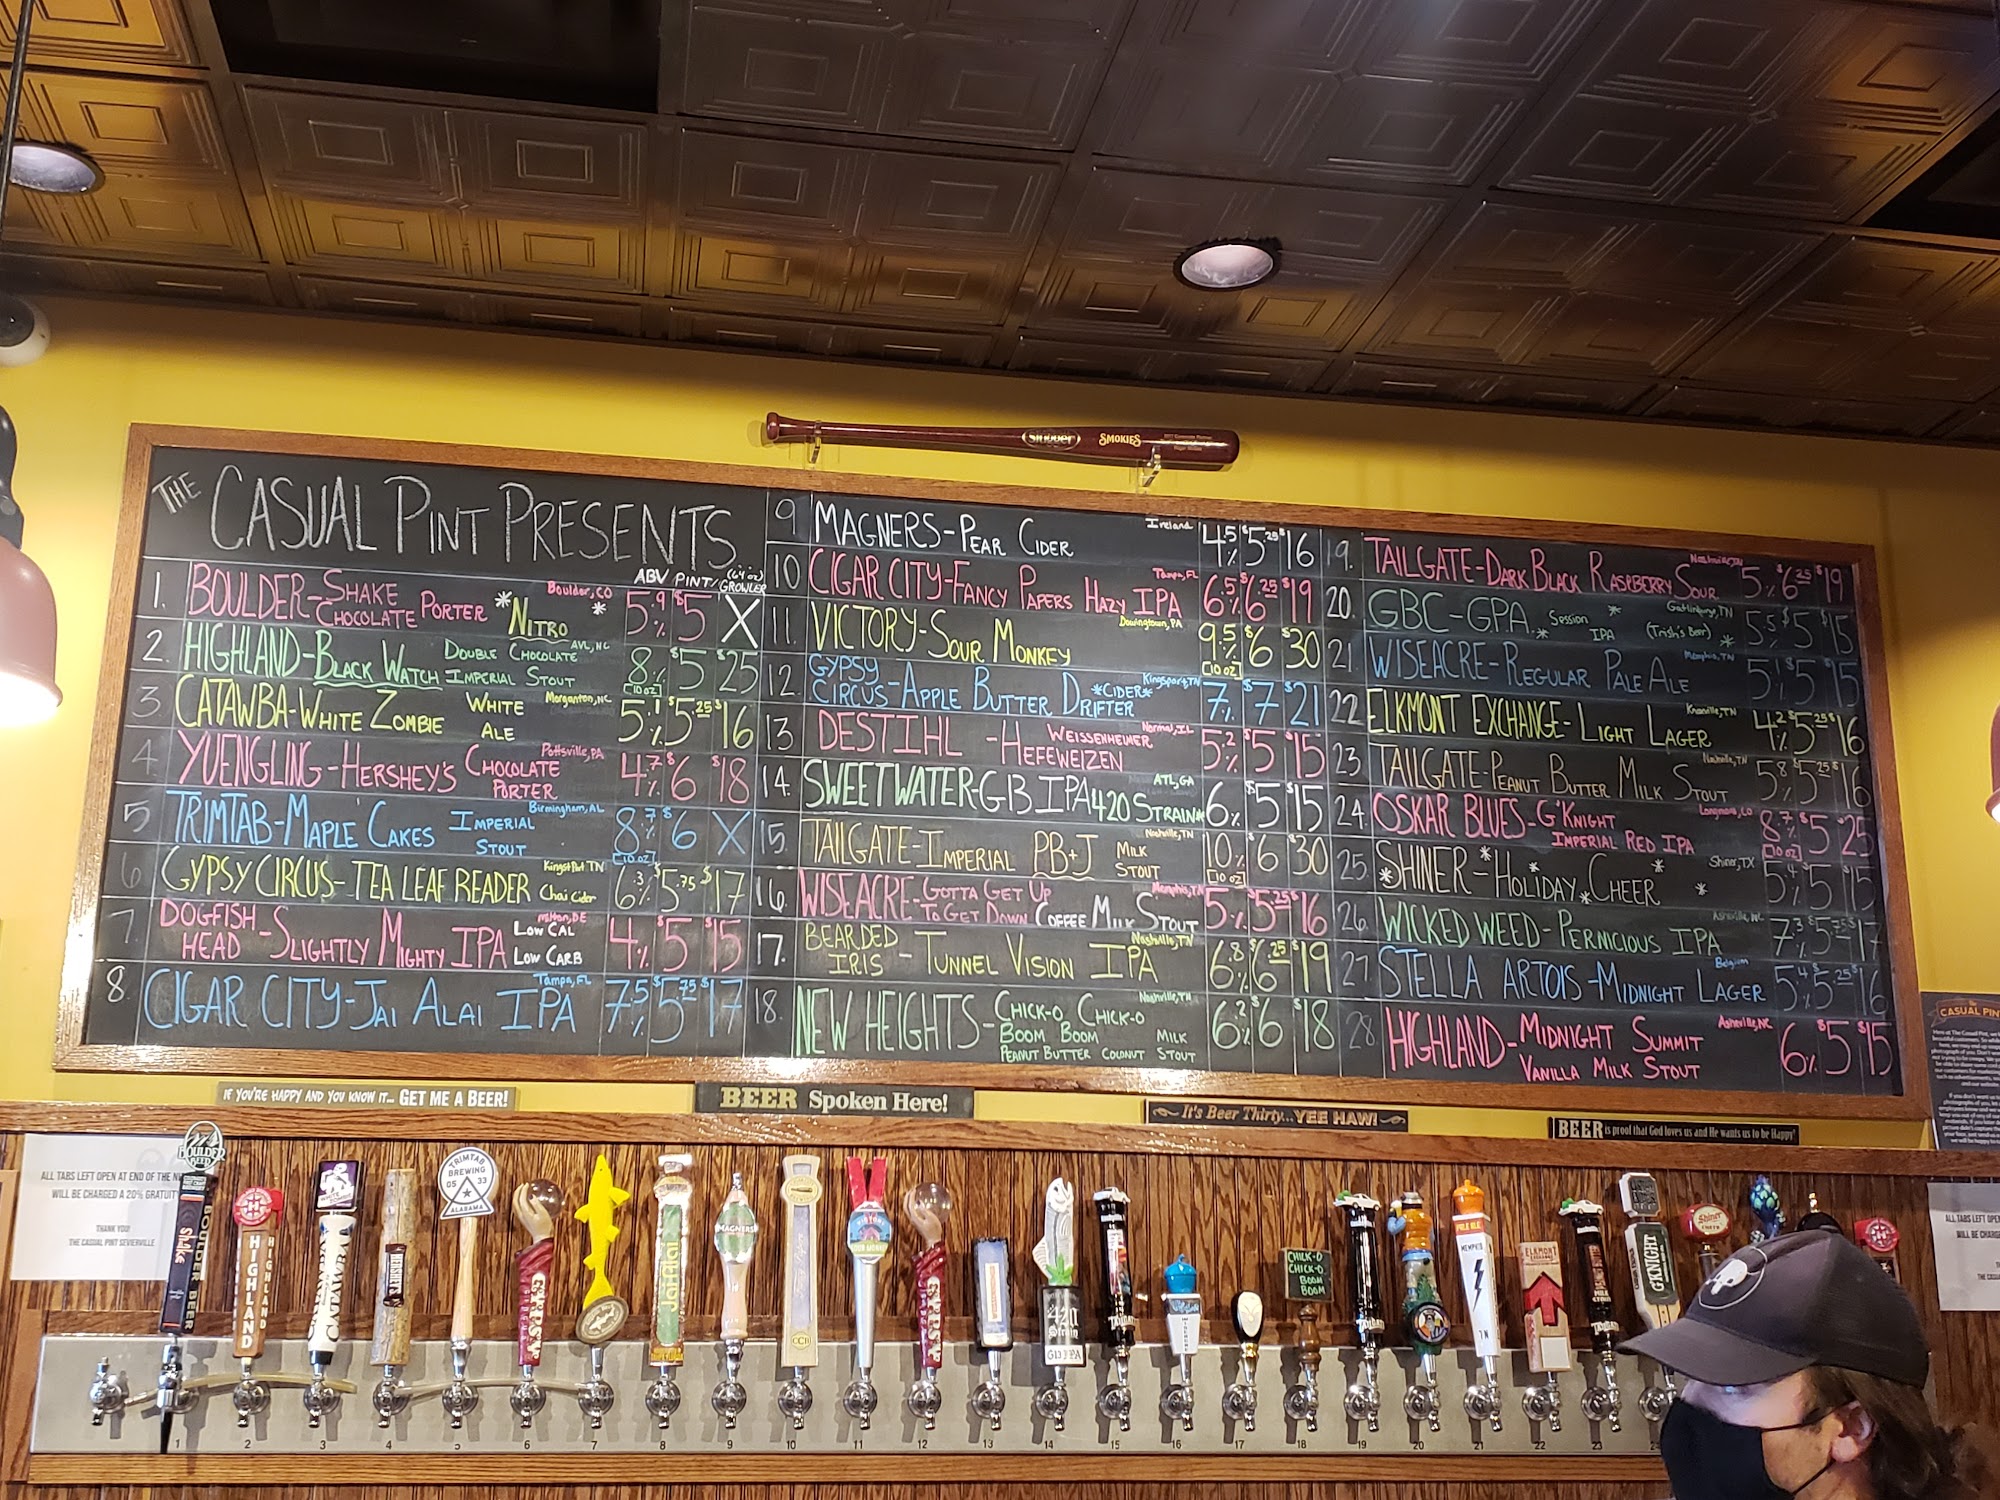 Slugger SMOKIES
THE CASUAL PINT PRESENTS
ABV PINT/ (64 oz) GROWLER
1. BOULDER-SHAKE CHOCOLATE PORTER *NITRO* Boulder, CO 5.9% $5 X
2. HIGHLAND-BLACK WATCH DOUBLE CHOCOLATE IMPERIAL STOUT AVL, NC 8% [10 oz] $5 $25
3. CATAWBA-WHITE ZOMBIE WHITE ALE Morganton, NC 5.1% $5.25 $16
4. YUENGLING-HERSHEY'S CHOCOLATE PORTER Pottsville, PA 4.7% $6 $18
5 TRIMTAB-MAPLE CAKES IMPERIAL STOUT Birmingham, AL 8.7% [10 oz] $6 X
6 GYPSY CIRCUS-TEA LEAF READER Chai Cider Kingsport TN 6.3% $5.75 $17
7 DOGFISH HEAD-SLIGHTLY MIGHTY IPA LOW CAL LOW CARB Milton, DE 4% $5 $15
8. CIGAR CITY-JAI ALAI IPA Tampa, FL 7.5% $5.75 $17
9 MAGNERS-PEAR CIDER Ireland 4.5% $5.25 $16
10 CIGAR CITY-FANCY PAPERS HAZY IPA Tampa, FL 6.5% $6.25 $19
11. VICTORY-SOUR MONKEY Downingtown, PA 9.5% [10 oz] $6 $30
12. GYPSY CIRCUS-APPLE BUTTER DRIFTER *CIDER* Kingsport, TN 7% $7 $21
13 DESTIHL-WEISSENHEIMER HEFEWEIZEN Normal, IL 5.2% $5 $15
14. SWEETWATER-G13 IPA 420 STRAIN* ATL, GA 6% $5 $15
15. TAILGATE-IMPERIAL PB+J MILK STOUT Nashville, TN 10% [10 oz] $6 $30
16. WISEACRE-GOTTA GET UP TO GET DOWN COFFEE MILK STOUT Memphis, TN 5% $5.25 $16
17. BEARDED IRIS-TUNNEL VISION IPA Nashville, TN 6.8% $6.25 $19
18. NEW HEIGHTS-CHICK-O CHICK-O BOOM BOOM PEANUT BUTTER COCONUT MILK STOUT Nashville, TN 6.2% $6 $18
19. TAILGATE-DARK BLACK RASPBERRY SOUR Nashville, TN 5% $6.25 $19
20. GBC-GPA SESSION IPA (Trish's Beer) Gatlinburg, TN 5.5% $5 $15
21. WISEACRE-REGULAR PALE ALE Memphis, TN 5.1% $5 $15
22 ELKMONT EXCHANGE-LIGHT LAGER Knoxville, TN 4.2% $5.25 $16
23 TAILGATE-PEANUT BUTTER MILK STOUT Nashville, TN 5.8% $5.25 $16
24. OSKAR BLUES-G'KNIGHT IMPERIAL RED IPA Longmont, CO 8.7% [10 oz] $5 $25
25. *SHINER*-HOLIDAY CHEER* Shiner, TX 5.4% $5 $15
26. WICKED WEED-PERNICIOUS IPA Asheville, NC 7.3% $5.75 $17
27. STELLA ARTOIS-MIDNIGHT LAGER Belgium 5.4% $5.25 $16
28. HIGHLAND-MIDNIGHT SUMMIT VANILLA MILK STOUT Asheville, NC 6% $5 $15
IF YOU'RE HAPPY AND YOU KNOW IT... GET ME A BEER!
BEER Spoken Here!
It's Beer Thirty...YEE HAW!
BEER is proof that God loves us and He wants us to be Happy!
CASUAL PINT
ALL TABS LEFT OPEN AT END OF THE
WILL BE CHARGED A 20% GRATUITY
THANK YOU!
THE CASUAL PINT SEVIERVILLE
ALL TABS LEFT OPEN
WILL BE CHARGED
BOULDER BEER
Shake
HIGHLAND
HERSHEY'S
TRIMTAB BREWING 05 33 ALABAMA
GYPSY
Jai Alai
MAGNERS
CCB
SOUR MONKEY
GYPSY
420 Strain G13 IPA
TAILGATE
CHICK-O CHICK-O BOOM BOOM
TAILGATE
PALE ALE MEMPHIS TN
ELKMONT
TAILGATE
G'KNIGHT
Shiner CHEER
1 2 3 4 5 6 7 8 9 10 11 12 13 14 15 16 17 18 19 20 21 22 23 24